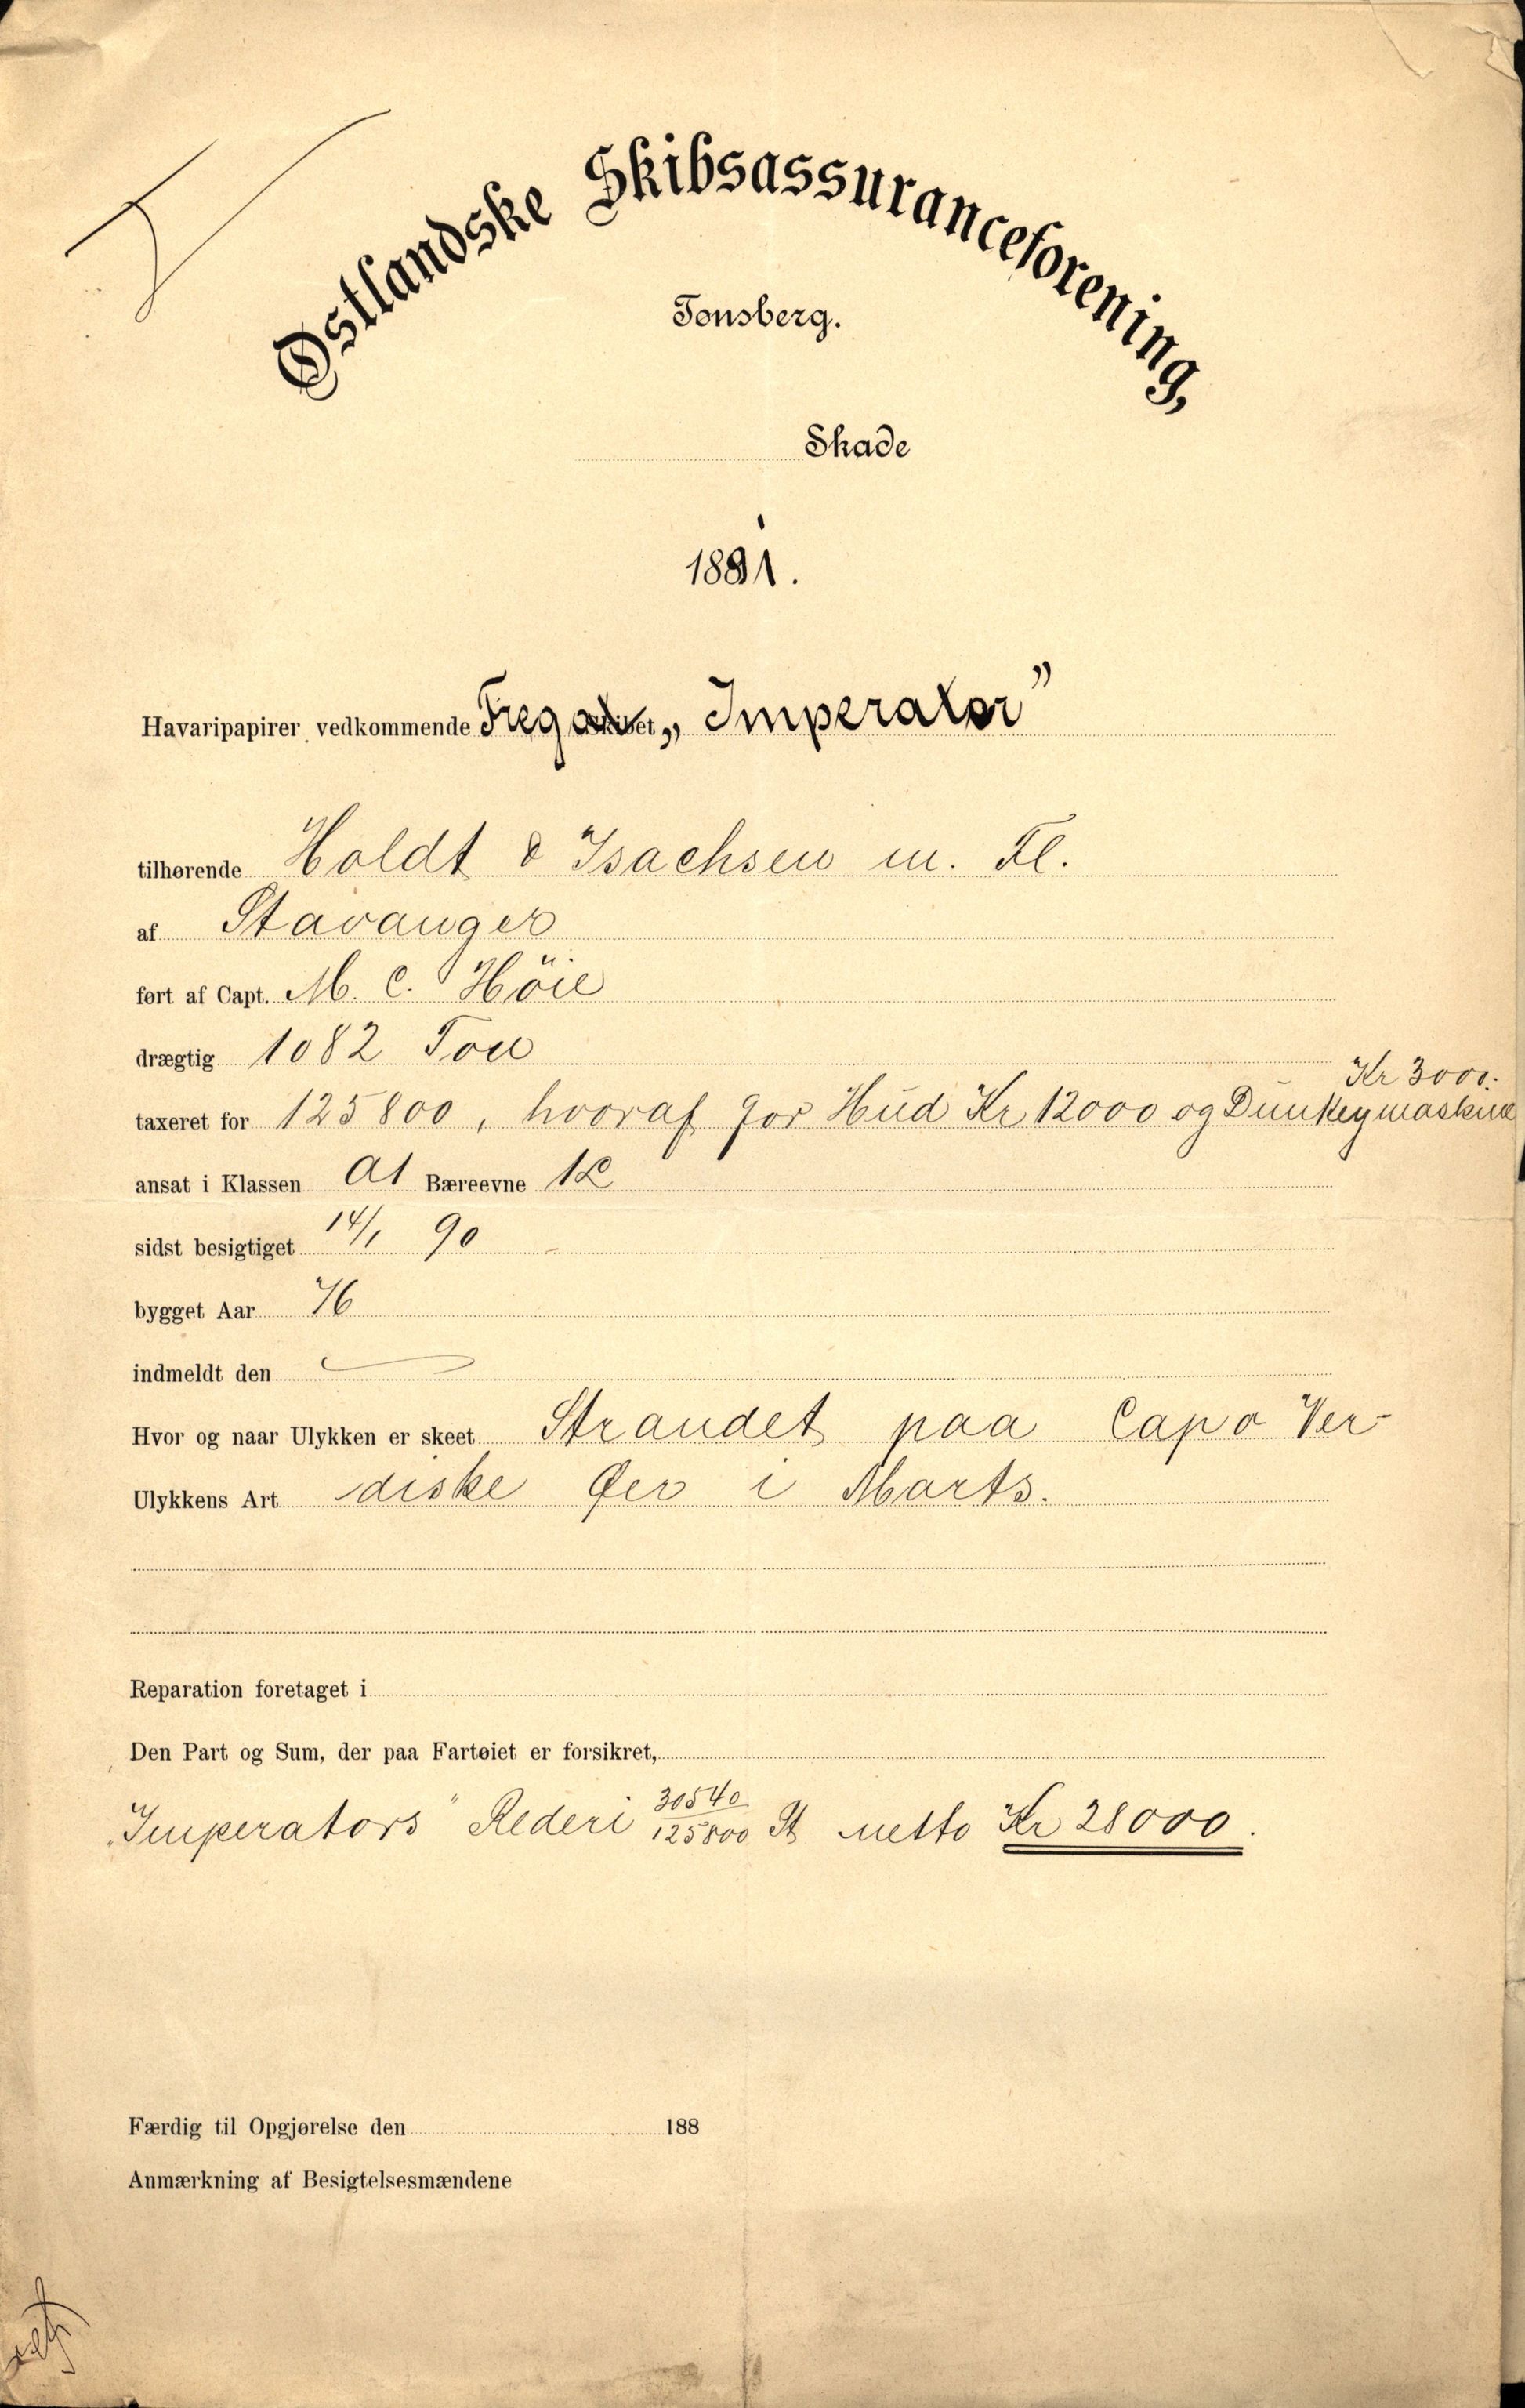 Østlandske Skibsassuranceforening,
Tønsberg.
Skade
1891.
Havaripapirer vedkommende Fregat „Imperator”
tilhørende Holdt & Isachsen m. Fl.
af Stavanger
ført af Capt. M. C. Höie
drægtig 1082 Ton
Kr 3000.
taxeret for 125800, hvoraf for Hud Kr 12000 og Dunkeymaskine
ansat i Klassen A1 Bæreevne
sidst besigtiget 14/1 90
bygget Aar 76
indmeldt den
Hvor og naar Ulykken er skeet Strandet paa Capo Ver-
Ulykkens Art diske Øer i Marts.
Reparation foretaget i
Den Part og Sum, der paa Fartøiet er forsikret,
„Imperators” Rederi 30540/125800 St netto Kr 28000.
Færdig til Opgjørelse den 188
Anmærkning af Besigtelsesmændene